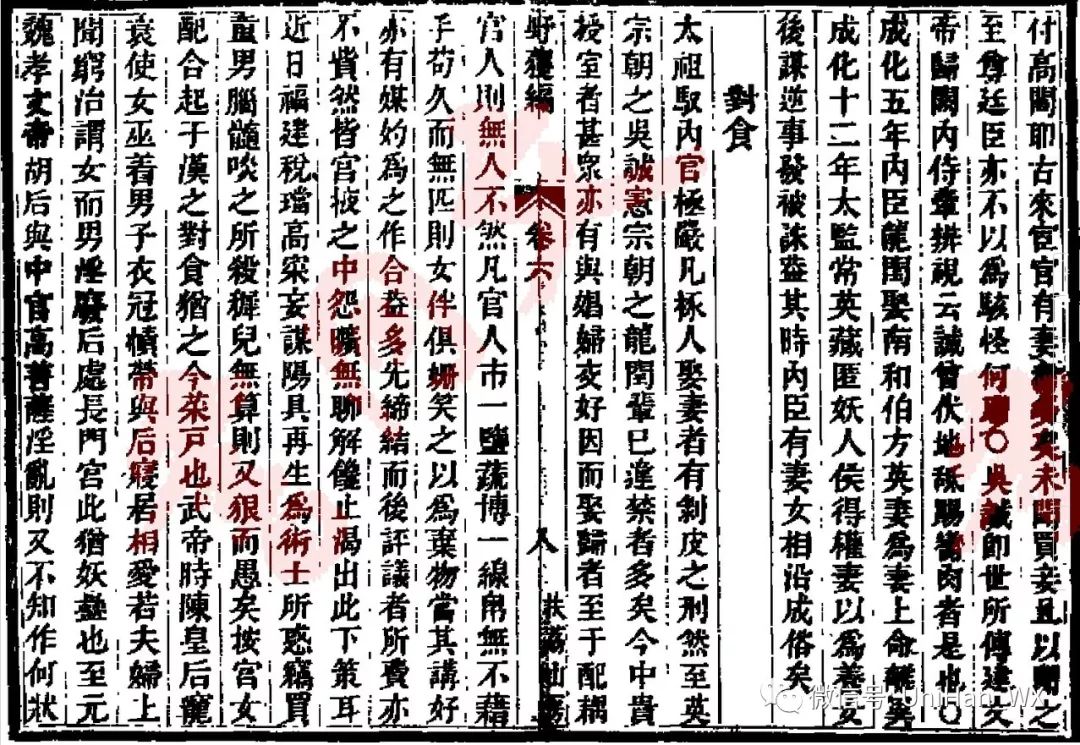 付高閣耶古來宦官有妻未聞買妾且以聞之
至尊廷臣亦不以爲駭怪何耶○吳誠即世所傳建文
帝歸闕內侍羣辨視云誠曾伏地舐賜臠肉者是也○
成化五年內臣龍閏娶南和伯方英妻爲妻上命離異
成化十二年太監常英藏匿妖人侯得權妻以爲義女
後謀逆事發被誅蓋其時內臣有妻女相沿成俗矣
對食
太祖馭內官極嚴凡椓人娶妻者有剝皮之刑然至英
宗朝之吳誠憲宗朝之龍閏輩已違禁者多矣今中貴
授室者甚衆亦有與娼婦交好因而娶歸者至于配耦
野獲編 卷六 八 扶荔山房
宮人則無人不然凡宮人市一鹽蔬博一線帛無不藉
手苟久而無匹則女伴俱姍笑之以爲棄物當其講好
亦有媒妁爲之作合蓋多先締結而後評議者所費亦
不貲然皆宮掖之中怨曠無聊解饞止渴出此下策耳
近日福建稅璫高寀妄謀陽具再生爲術士所惑竊買
童男腦髓啖之所殺穉兒無算則又狠而愚矣按宮女
配合起于漢之對食猶之今菜戶也武帝時陳皇后寵
衰使女巫着男子衣冠幘帶與后寢居相愛若夫婦上
聞窮治謂女而男淫廢后處長門宮此猶妖蠱也至元
魏孝文帝胡后與中官高菩薩淫亂則又不知作何狀
微信号: UniHan_Wx